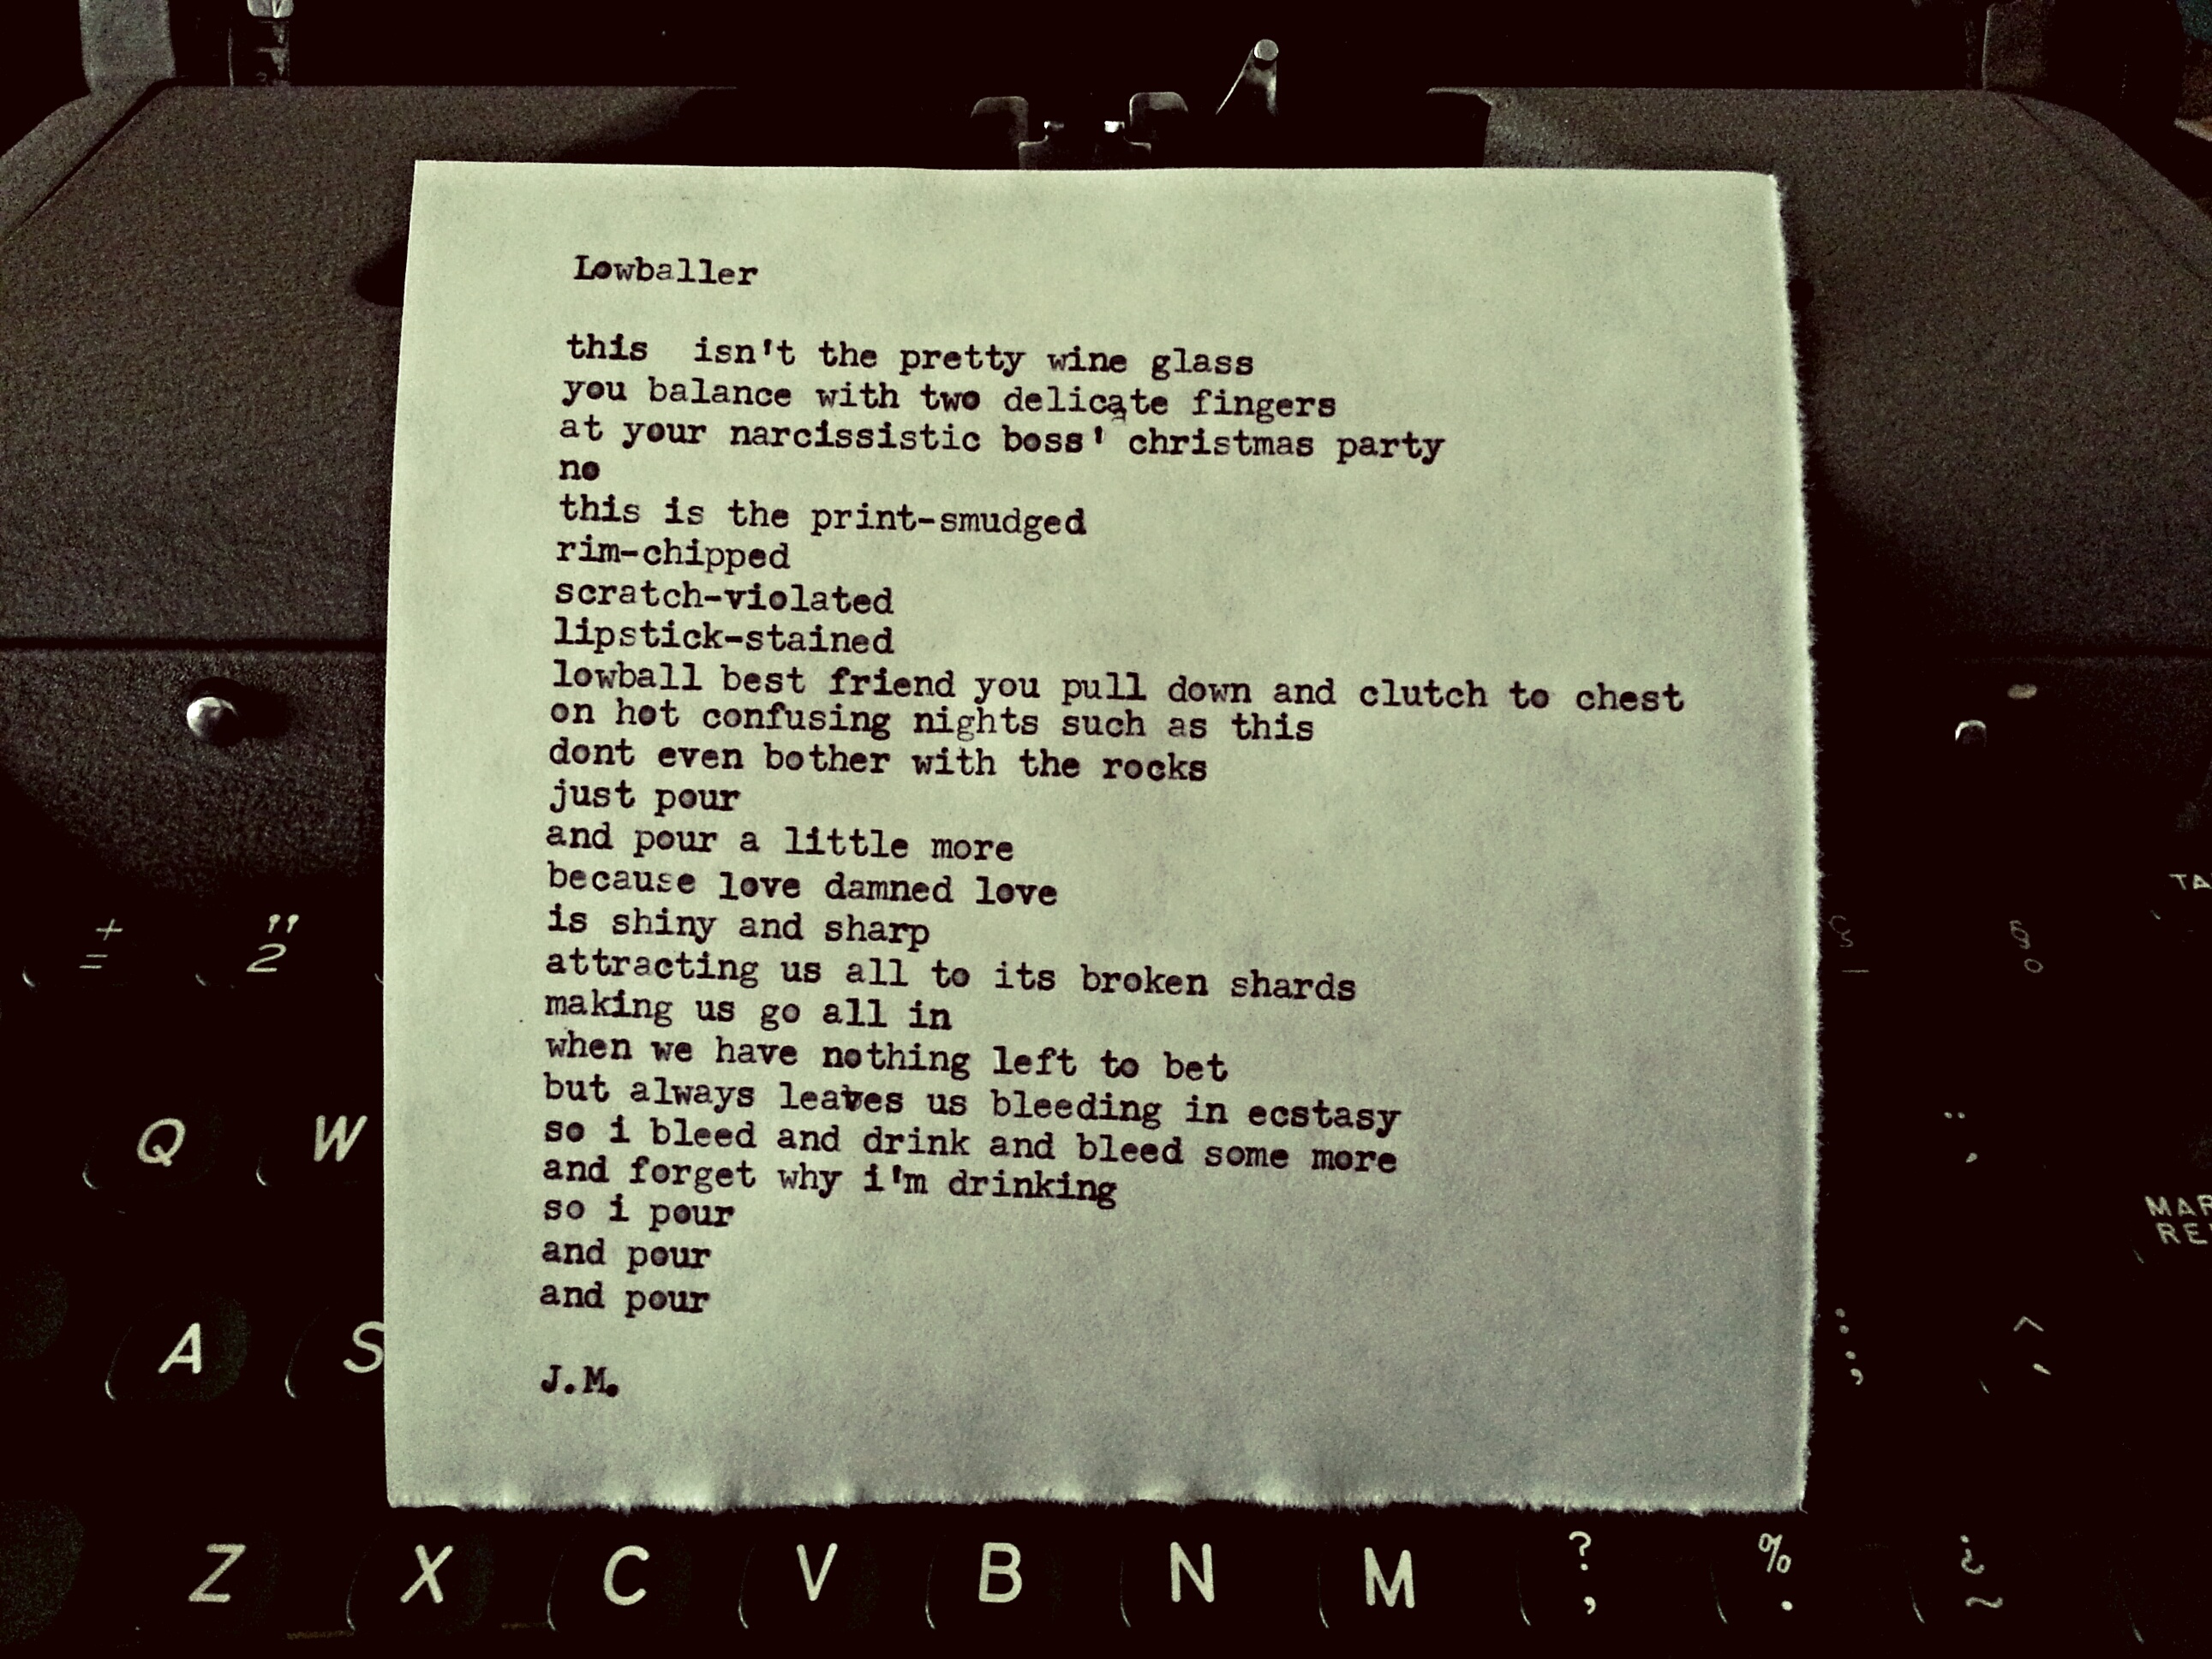 Lowballer
this  isn't the pretty wine glass
you balance with two delicate fingers
at your narcissistic boss' christmas party
no
this is the print-smudged
rim-chipped
scratch-violated
lipstick-stained
lowball best friend you pull down and clutch to chest
on hot confusing nights such as this
dont even bother with the rocks
just pour
and pour a little more
because love damned love
is shiny and sharp
attracting us all to its broken shards
making us go all in
when we have nothing left to bet
but always leaves us bleeding in ecstasy
so i bleed and drink and bleed some more
and forget why i'm drinking
so i pour
and pour
and pour
J.M.
+ "
= 2
Q W
A S
Z X C V B N M ? , % . ¿ ~